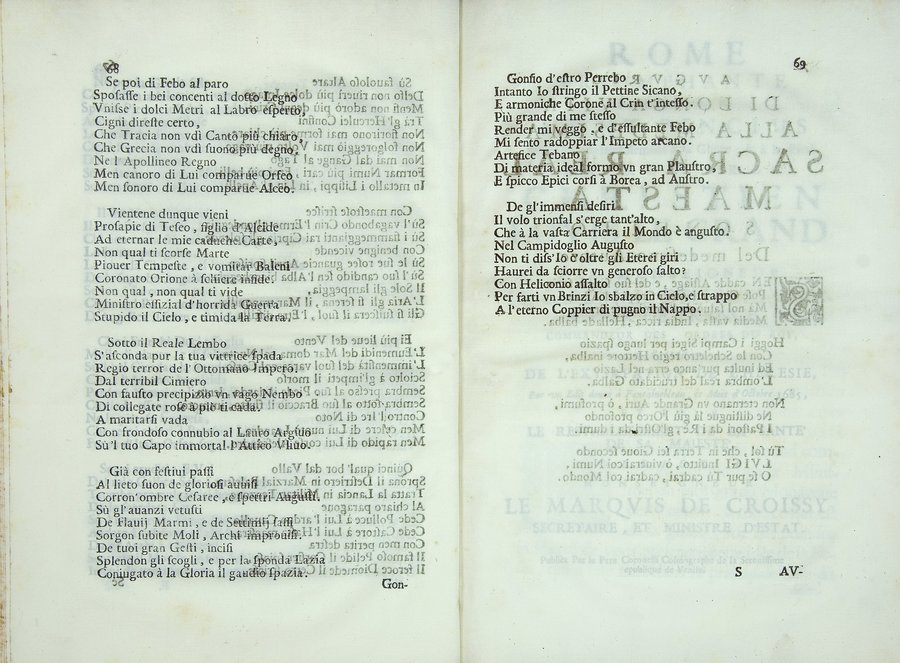 68
Se poi di Febo al paro
Sposasse i bei concenti al dotto Legno
Vnisse i dolci Metri al Labro esperto,
Cigni direste certo,
Che Tracia non vdì Canto più chiaro,
Che Grecia non vdì suono più degno.
Ne l'Apollineo Regno
Men canoro di Lui comparue Orfeo,
Men sonoro di Lui comparue Alceo.
Vientene dunque vieni
Prosapie di Teseo, figlio d'Alcide
Ad eternar le mie caduche Carte,
Non qual ti scorse Marte
Piouer Tempeste, e vomitar Baleni
Coronato Orione à schiere infide.
Non qual, non qual ti vide
Ministro efizial d'horrida Guerra
Stupido il Cielo, e timida la Terra.
Sotto il Reale Lembo
S'asconda pur la tua vittrice spada
Regio terror de l'Ottomano Impero.
Dal terribil Cimiero
Con fausto precipizio vn vago Nembo
Di collegate rose à piè ti cada.
A maritarsi vada
Con frondoso connubio al Lauro Arguo
Sù'l tuo Capo immortal l'Attico Vliuo.
Già con festiui passi
Al lieto suon de gloriosi auuisi
Corron' ombre Cesaree, e spettri Augusti.
Sù gl'auanzi vetusti
De Flauij Marmi, e de Settimij sassi
Sorgon subite Moli, Archi improuisi.
De tuoi gran Gesti, incisi
Splendon gli scogli, e per la sponda Lazia
Coniugato à la Gloria il gaudio spazia.
Gon-
69
Gonfio d'estro Perrebo
Intanto Io stringo il Pettine Sicano,
E armoniche Corone al Crin t'intesso.
Più grande di me stesso
Render mi veggo, e d'essultante Febo
Mi sento radoppiar l'Impeto arcano.
Artefice Tebano
Di materia ideal formo vn gran Plaustro,
E spicco Epici corsi à Borea, ad Austro.
De gl'immensi desiri
Il volo trionfal s'erge tant'alto,
Che à la vasta Carriera il Mondo è angusto.
Nel Campidoglio Augusto
Non ti diss'Io c'oltre gli Eterei giri
Haurei da sciorre vn generoso salto?
Con Heliconio assalto
Per farti vn Brinzi Io sbalzo in Cielo, e strappo
A l'eterno Coppier di pugno il Nappo.
S AV-